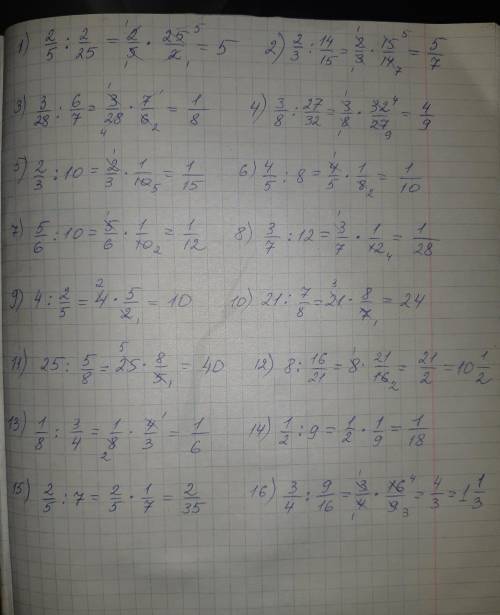 1) 2/5 : 2/25 = 2/5 · 25/2 = 5   2) 2/3 : 14/15 = 2/3 · 15/14 = 5/7
3) 3/28 : 6/7 = 3/28 · 7/6 = 1/8   4) 3/8 : 27/32 = 3/8 · 32/27 = 4/9
5) 2/3 : 10 = 2/3 · 1/10 = 1/15   6) 4/5 : 8 = 4/5 · 1/8 = 1/10
7) 5/6 : 10 = 5/6 · 1/10 = 1/12   8) 3/7 : 12 = 3/7 · 1/12 = 1/28
9) 4 : 2/5 = 4 · 5/2 = 10   10) 21 : 7/8 = 21 · 8/7 = 24
11) 25 : 5/8 = 25 · 8/5 = 40   12) 8 : 16/21 = 8 · 21/16 = 21/2 = 10 1/2
13) 1/8 : 3/4 = 1/8 · 4/3 = 1/6   14) 1/2 : 9 = 1/2 · 1/9 = 1/18
15) 2/5 : 7 = 2/5 · 1/7 = 2/35   16) 3/4 : 9/16 = 3/4 · 16/9 = 4/3 = 1 1/3